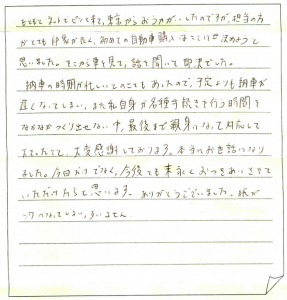 もともとネットでピンと来て、東京からおうかがいしたのですが、担当の方
がとても印象が良く、初めての自動車購入はここに決めようと
思いました。そこから車を見て、話を聞いて即決でした。
納車の時期が忙しいとのこともあったので、予定よりも納車が
遅くなってしまい、また私自身が各種手続きを行う時間を
なかなかつくり出せない中、最後まで親身になって対応して
下さったこと、大変感謝しております。本当にお世話になり
ました。今回だけでなく、今後とも末永くおつきあいさせて
いただけたらと思います。ありがとうございました。紙が
なってしまい、すいません